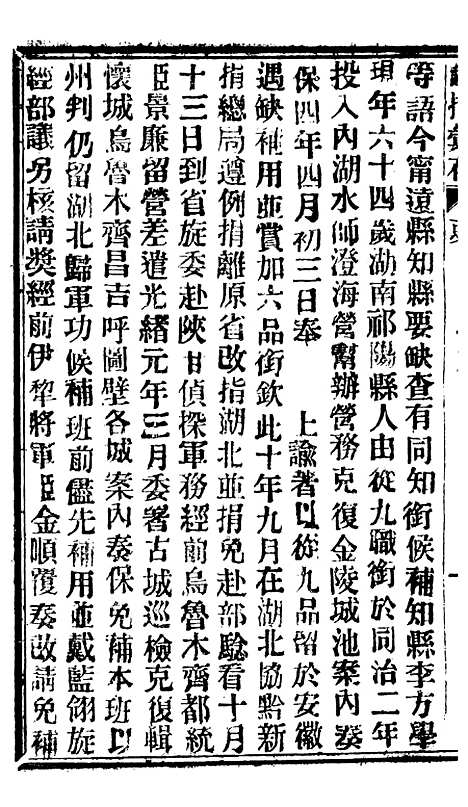 等語今甯遠縣知縣要缺查有同知銜候補知縣李方學
現年六十四歲湖南祁陽縣人由從九職銜於同治二年
投入內湖水師澄海營幫辦營務克復金陵城池案內奏
保四年四月初三日奉　上諭著以從九品留於安徽
遇缺補用並賞加六品銜欽此十年九月在湖北協黔新
捐總局遵例捐離原省改指湖北並捐免赴部驗看十月
十三日到省旋委赴陝甘偵探軍務經前烏魯木齊都統
臣景廉留營差遣光緒元年三月委署古城巡檢克復輯
懷城烏魯木齊昌吉呼圖壁各城案內奏保免補本班以
州判仍留湖北歸軍功候補班前儘先補用並戴藍翎旋
經部議另核請獎經前伊犂將軍臣金順覆奏改請免補